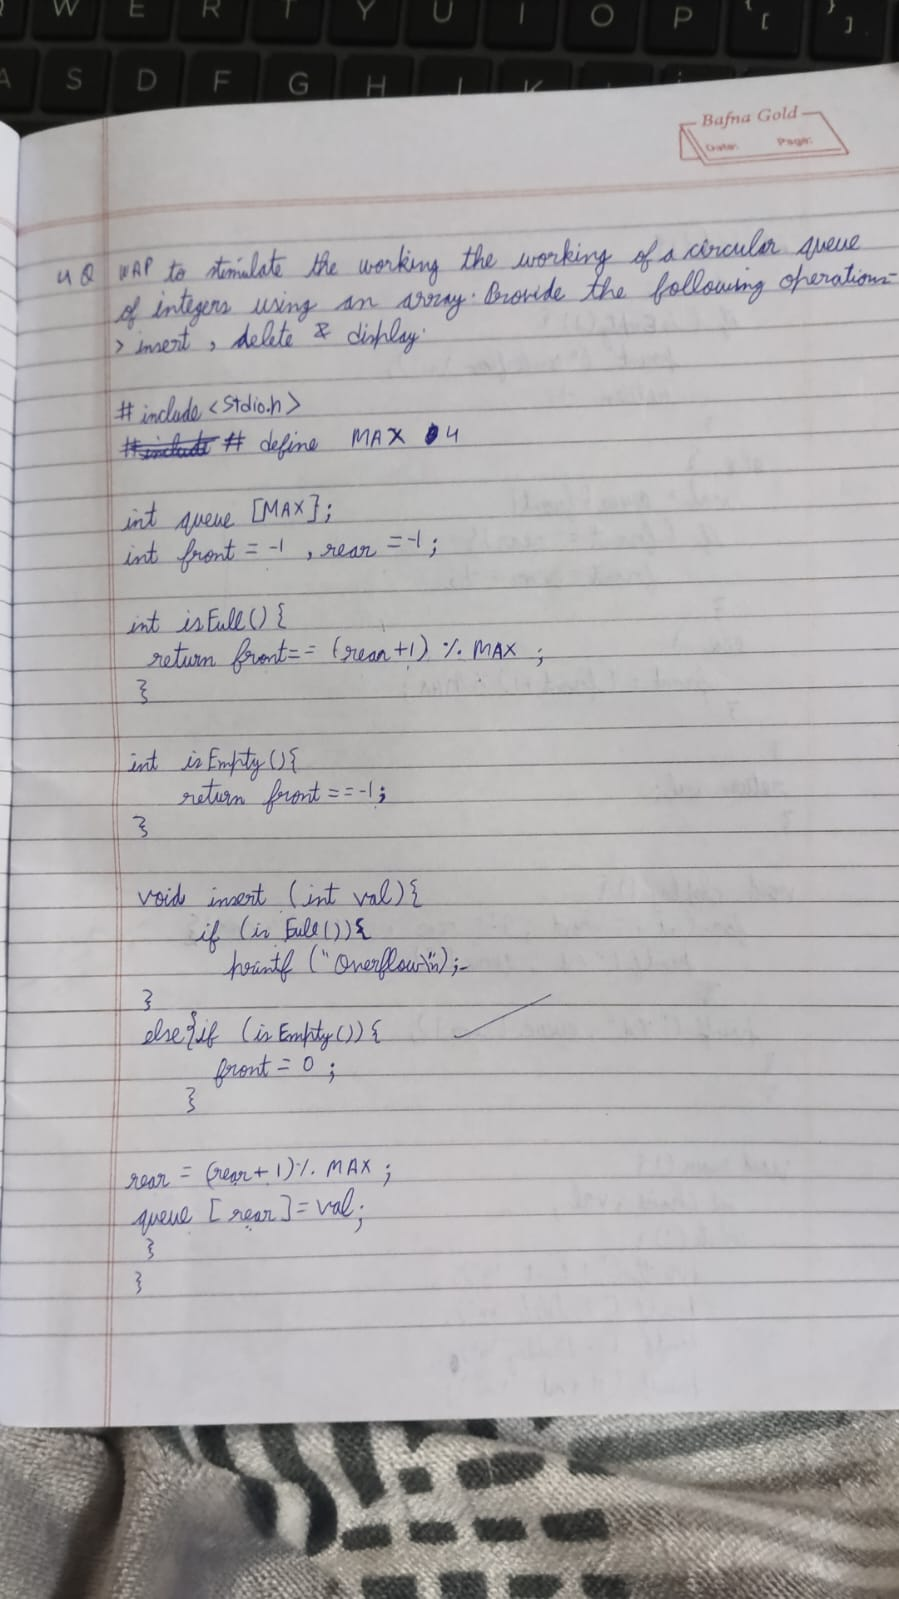 W E R T Y U I O P { [ } ]
A S D F G H J K
Bafna Gold
Date: Page:
4 Q WAP to stimulate the working the working of a circular queue
of integers using an array. Provide the following operations-
> insert, delete & display.
# include <stdio.h>
#include # define MAX 4
int queue [MAX];
int front = -1 , rear = -1 ;
int isFull() {
return front== (rear+1) % MAX ;
}
int isEmpty () {
return front == -1 ;
}
void insert (int val) {
if (isFull()) {
printf ("Overflow\n");
}
else{if (isEmpty ()) {
front = 0 ;
}
rear = (rear+1) % MAX ;
queue [rear] = val;
}
}